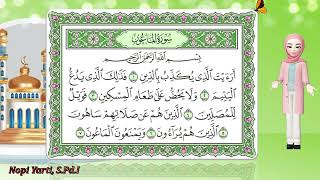 سُورَةُ الْمَاعُونِ
بِسْمِ اللَّهِ الرَّحْمَٰنِ الرَّحِيمِ
أَرَءَيْتَ الَّذِي يُكَذِّبُ بِالدِّينِ ١ فَذَٰلِكَ الَّذِي يَدُعُّ
الْيَتِيمَ ٢ وَلَا يَحُضُّ عَلَىٰ طَعَامِ الْمِسْكِينِ ٣ فَوَيْلٌ
لِّلْمُصَلِّينَ ٤ الَّذِينَ هُمْ عَن صَلَاتِهِمْ سَاهُونَ ٥
الَّذِينَ هُمْ يُرَاءُونَ ٦ وَيَمْنَعُونَ الْمَاعُونَ ٧
Nopi Yarti, S.Pd.I